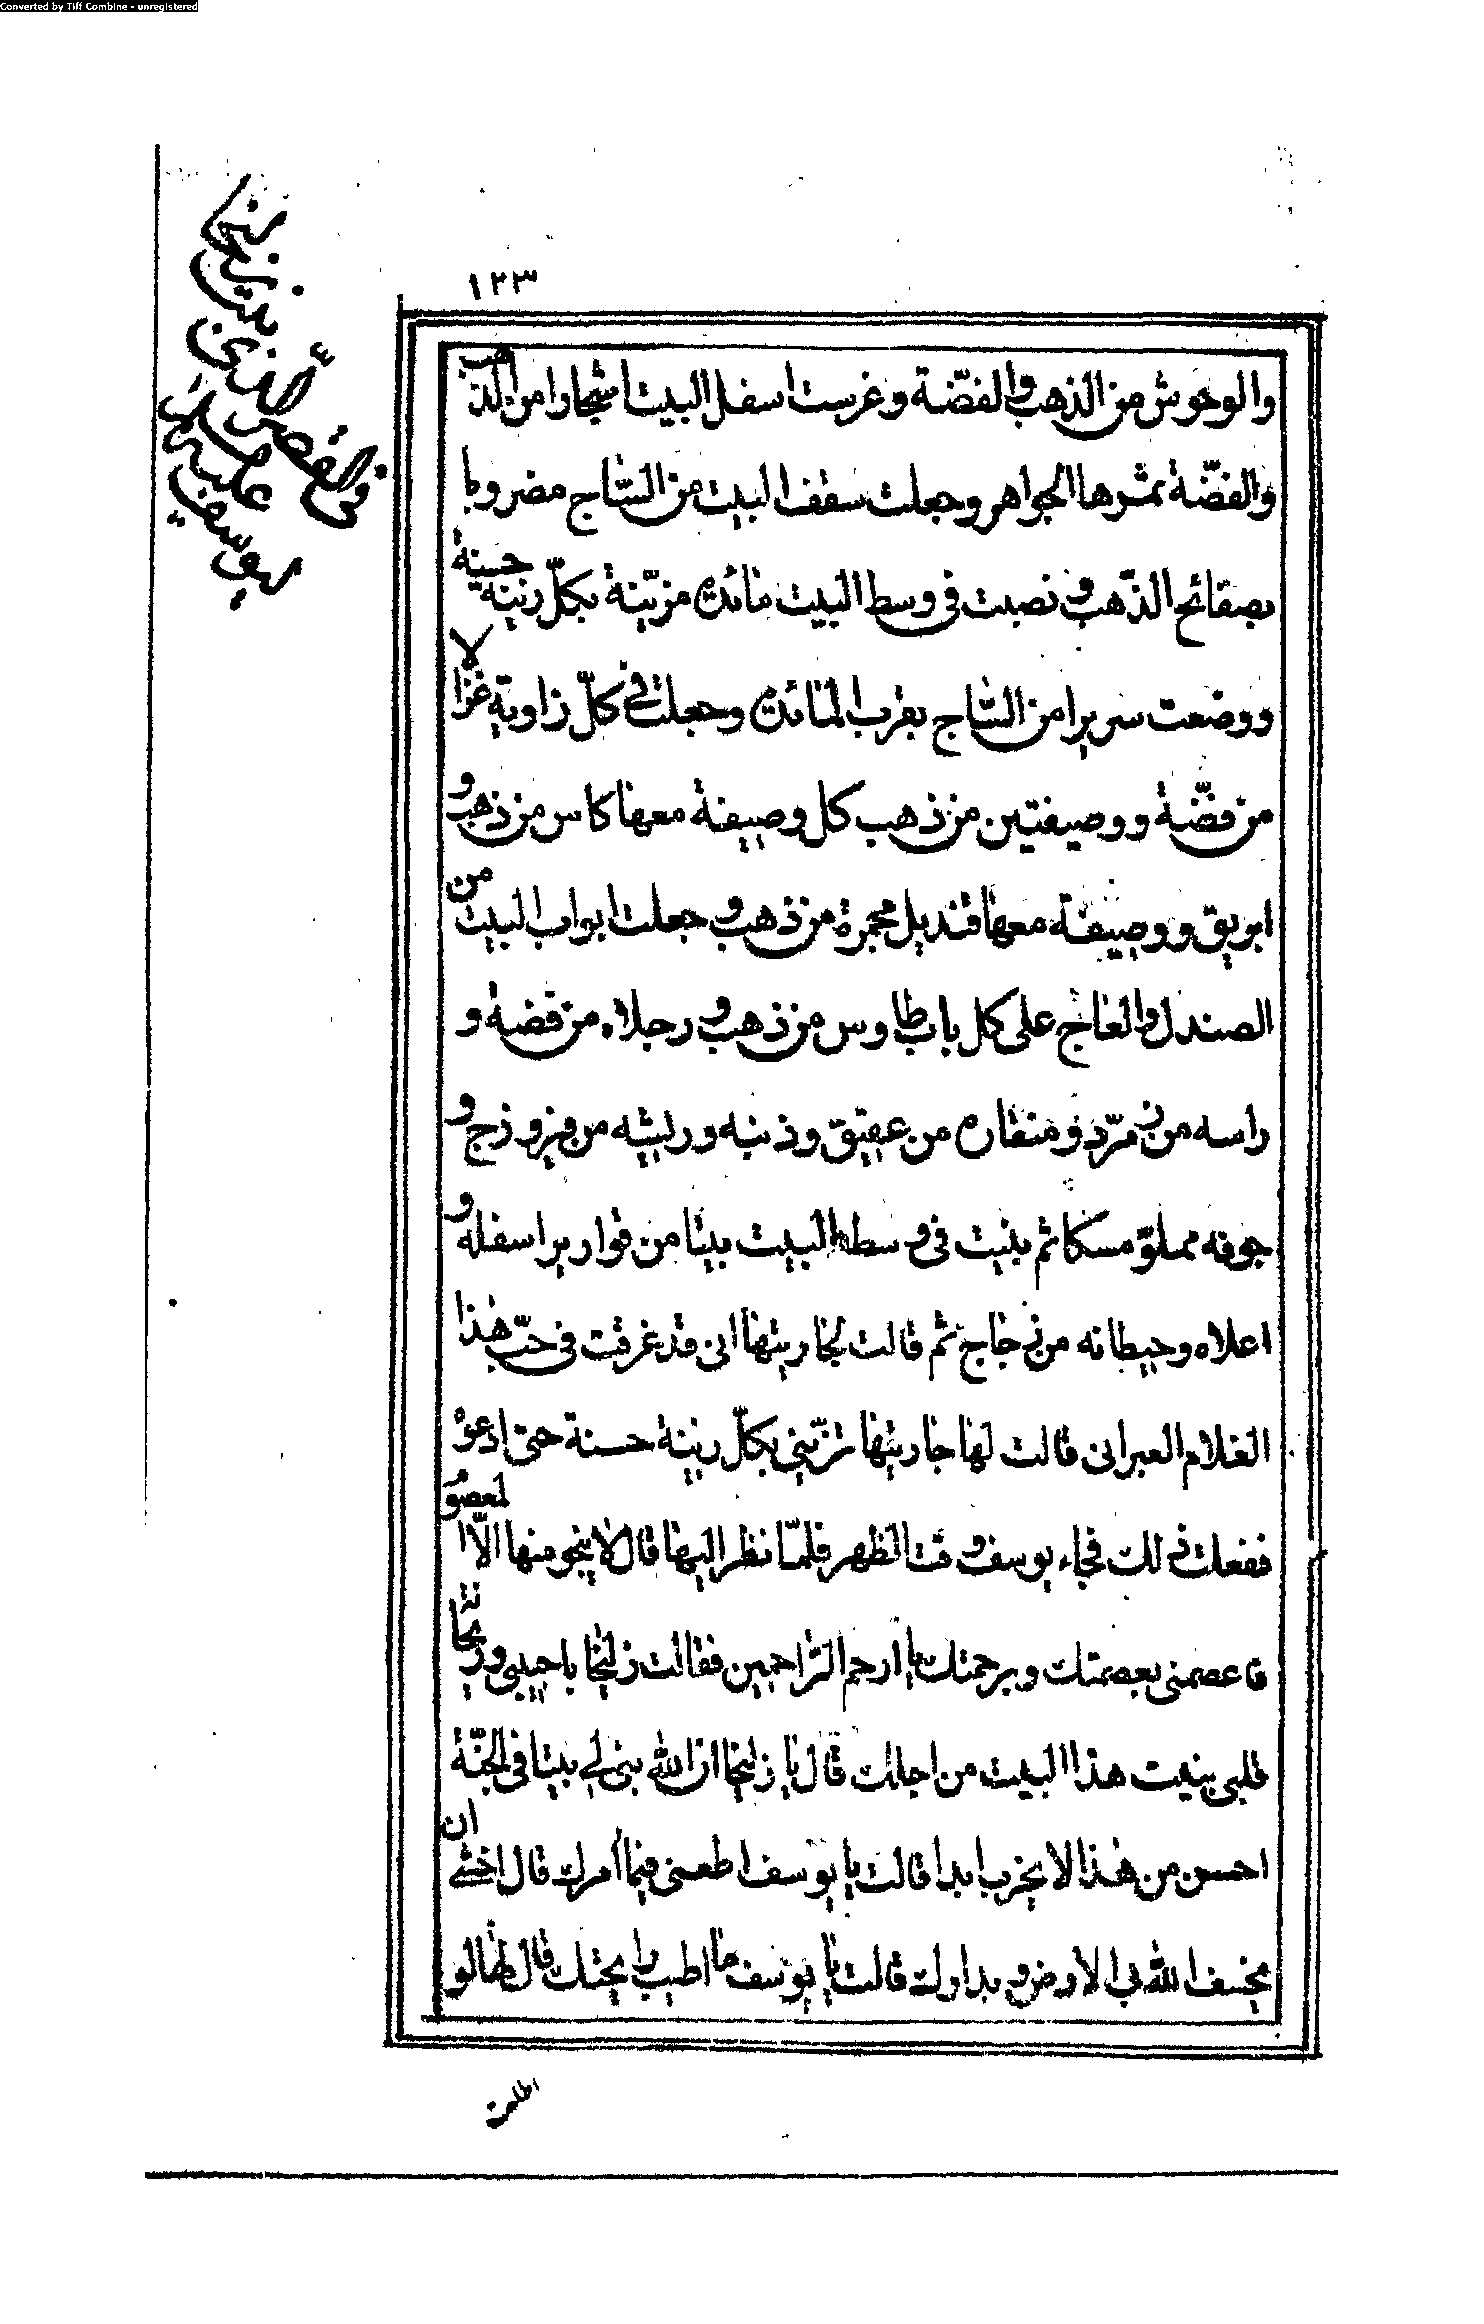 Converted by Tiff Combine - unregistered
١٢٣
في القصر الذى
بنت زليخا
ليوسف عليه السلام
والوحوش من الذهب والفضّة وغرست اسفل البيت اشجارا من الذهب
والفضّة ثمرها الجواهر وجعلت سقف البيت من السّاج مضروبا
بصفائح الذّهب و نصبت فى وسط البيت مائدة مزيّنة بكلّ زينة حسنة
ووضعت سريرا من السّاج بقرب المائدة وجعلت فى كلّ زاوية غزالا
من فضّة ووصيفتين من ذهب كل وصيفة معها كاس من ذهب و
ابريق ووصيفة معها قنديل مجمرة من ذهب و جعلت ابواب البيت من
الصندل والعاج على كل باب طاوس من ذهب و رجلاه من فضة و
راسه من زمرّد و منقاره من عقيق وذنبه وريشه من فيروزج و
جوفه مملوّ مسكا ثم بنيت فى وسط البيت بيتا من قوارير اسفله و
اعلاه وحيطانه من زجاج ثم قالت لجاريتها انى قد غرقت فى حبّ هذا
الغلام العبرانى قالت لها جاريتها تزيّنى بكلّ زينة حسنة حتى ادعوه
ففعلت ذلك فجاء يوسف وقت الظهر فلمّا نظر اليها قال لا ينجو منها الّا المعصوم
فاعصمنى بعصمتك وبرحمتك يا ارحم الرّاحمين فقالت زليخا يا حبيبى وريحانة
قلبى بنيت هذا البيت من اجلك قال يا زليخا ان الله بنى لى بيتا فى الجنّة
احسن من هذا لا يخرب ابدا قالت يا يوسف اطعنى فيما امرك قال اخشى ان
يخسف الله بى الارض و بدارك قالت يا يوسف ما اطيب رايحتك قال لها لو
اطلعت